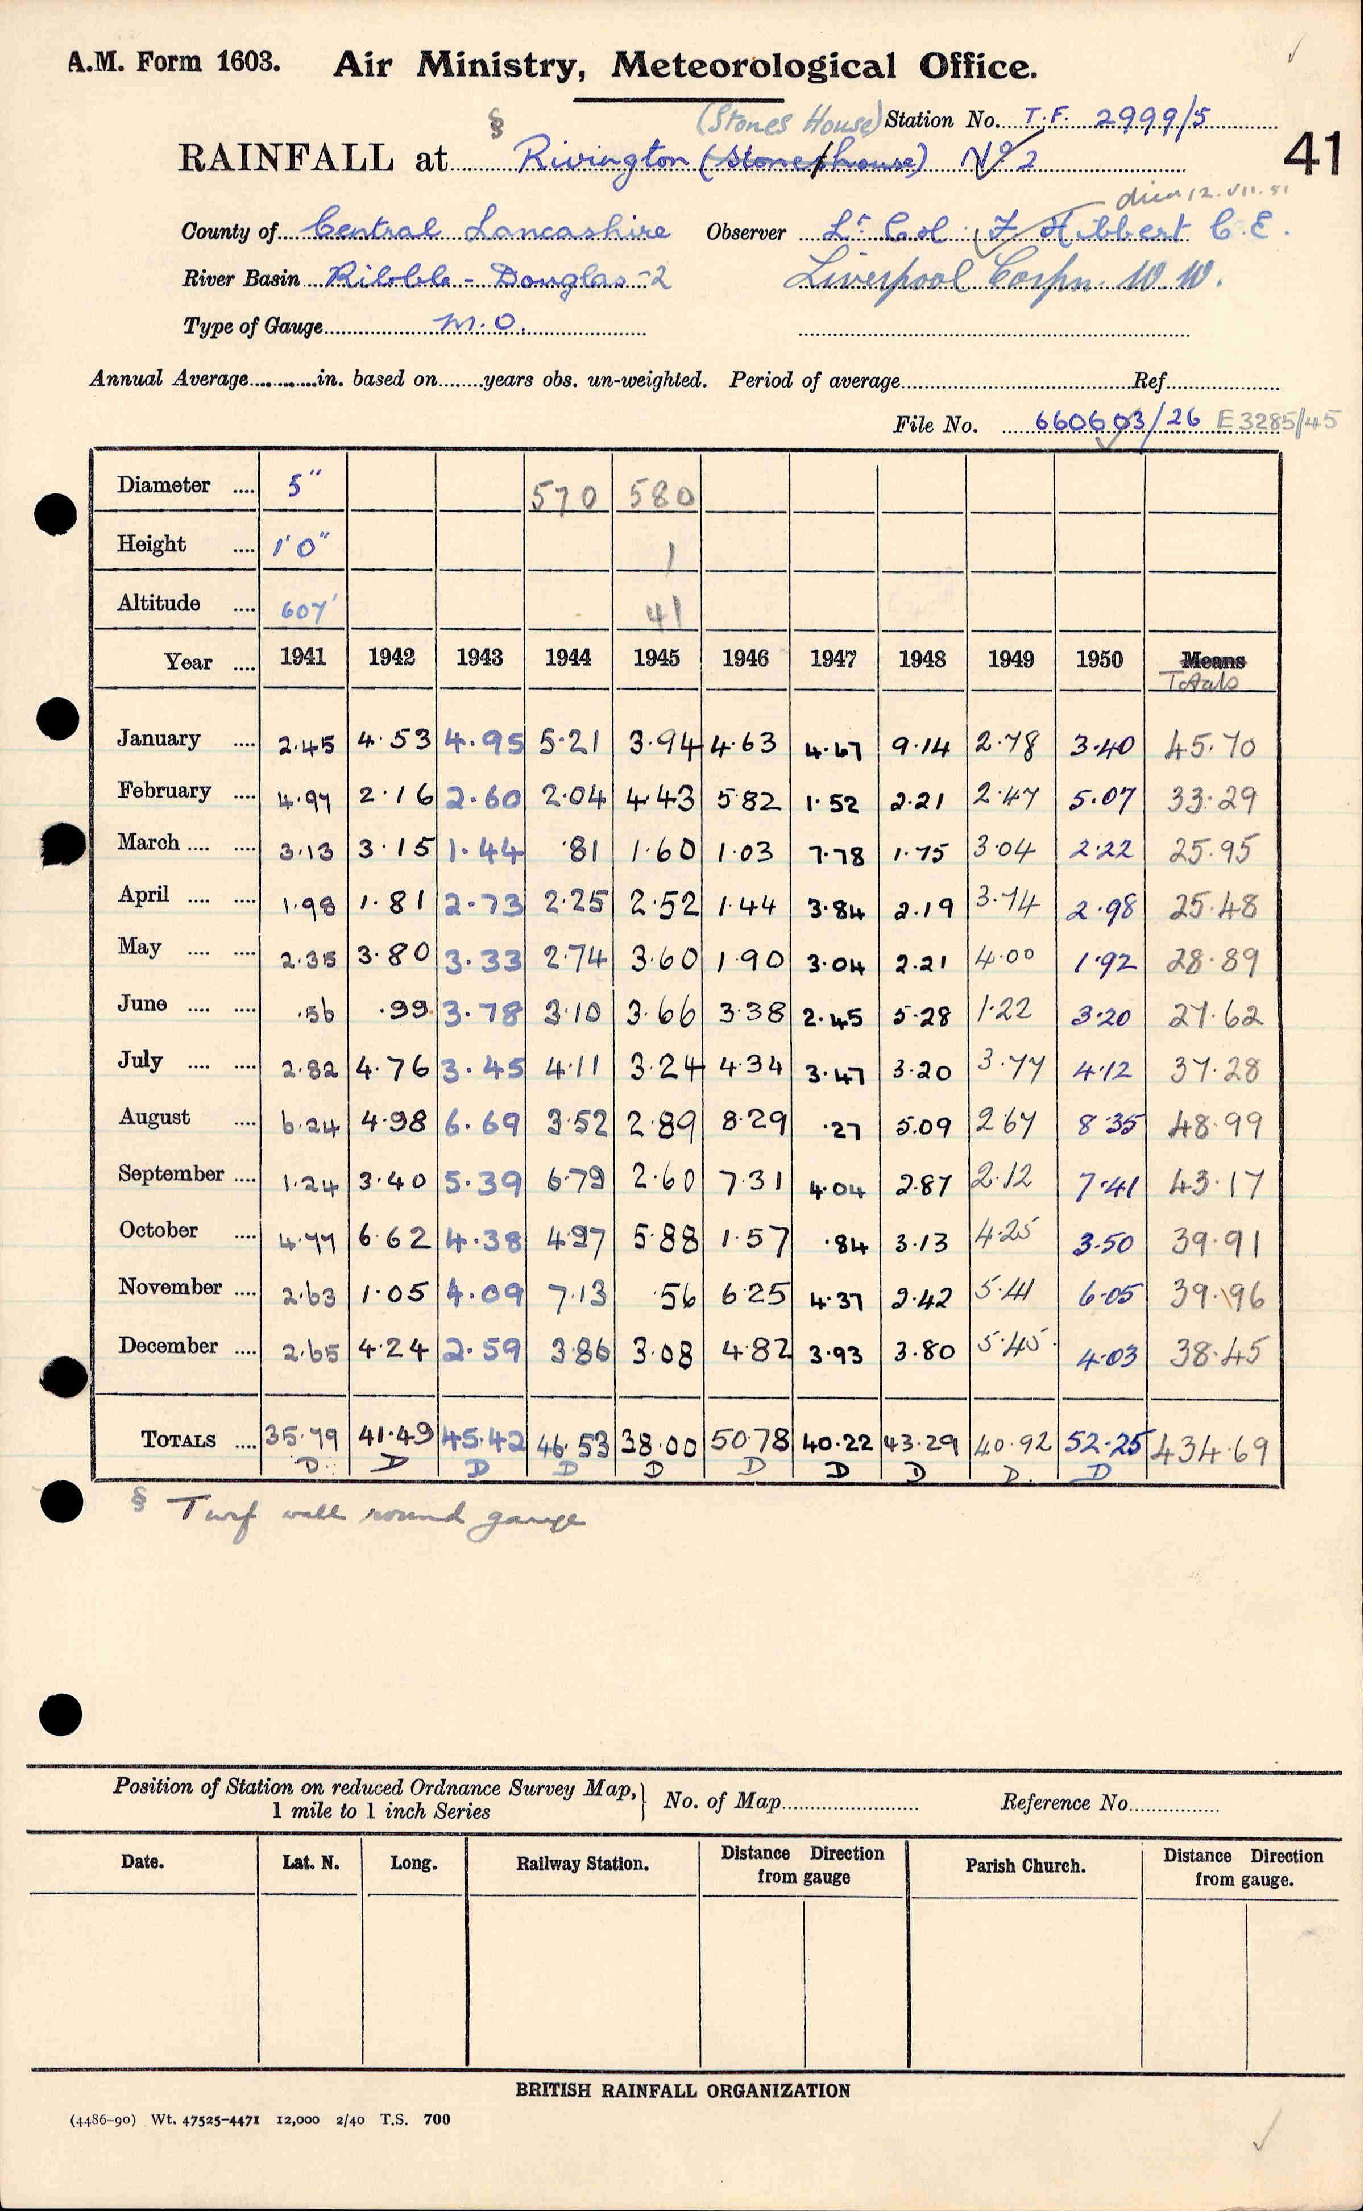 A.M. Form 1603. Air Ministry, Meteorological Office.
(Stones House) Station No. T.F. 2999/5
§
RAINFALL at Rivington (Stonehouse) No 2
41
died 12.VII.51
County of Central Lancashire Observer Lt. Col. F. Hibbert C.E.
River Basin Ribble - Douglas - 2 Liverpool Corpn. W.W.
Type of Gauge M.O.
Annual Average in. based on years obs. un-weighted. Period of average Ref
File No. 660603/26 E3285/45
Diameter .... 5" 570 580
Height .... 1'0" 1
Altitude .... 607' 41
Year .... 1941 1942 1943 1944 1945 1946 1947 1948 1949 1950 Means
Totals
January .... 2.45 4.53 4.95 5.21 3.94 4.63 4.67 9.14 2.78 3.40 45.70
February .... 4.97 2.16 2.60 2.04 4.43 5.82 1.52 2.21 2.47 5.07 33.29
March .... .... 3.13 3.15 1.44 .81 1.60 1.03 7.78 1.75 3.04 2.22 25.95
April .... .... 1.98 1.81 2.73 2.25 2.52 1.44 3.84 2.19 3.74 2.98 25.48
May .... .... 2.35 3.80 3.33 2.74 3.60 1.90 3.04 2.21 4.00 1.92 28.89
June .... .... .56 .99 3.78 3.10 3.66 3.38 2.45 5.28 1.22 3.20 27.62
July .... .... 2.82 4.76 3.45 4.11 3.24 4.34 3.47 3.20 3.77 4.12 37.28
August .... 6.24 4.98 6.69 3.52 2.89 8.29 .27 5.09 2.67 8.35 48.99
September .... 1.24 3.40 5.39 6.79 2.60 7.31 4.04 2.87 2.12 7.41 43.17
October .... 4.77 6.62 4.38 4.97 5.88 1.57 .84 3.13 4.25 3.50 39.91
November .... 2.63 1.05 4.09 7.13 .56 6.25 4.37 2.42 5.41 6.05 39.96
December .... 2.65 4.24 2.59 3.86 3.08 4.82 3.93 3.80 5.45 4.03 38.45
TOTALS .... 35.79 41.49 45.42 46.53 38.00 50.78 40.22 43.29 40.92 52.25 434.69
D D D D D D D D D D
§ Turf wall round gauge
Position of Station on reduced Ordnance Survey Map, } No. of Map Reference No.
1 mile to 1 inch Series
Date. Lat. N. Long. Railway Station. Distance Direction from gauge Parish Church. Distance Direction from gauge.
BRITISH RAINFALL ORGANIZATION
(4486-90) Wt. 47525-4471 12,000 2/40 T.S. 700